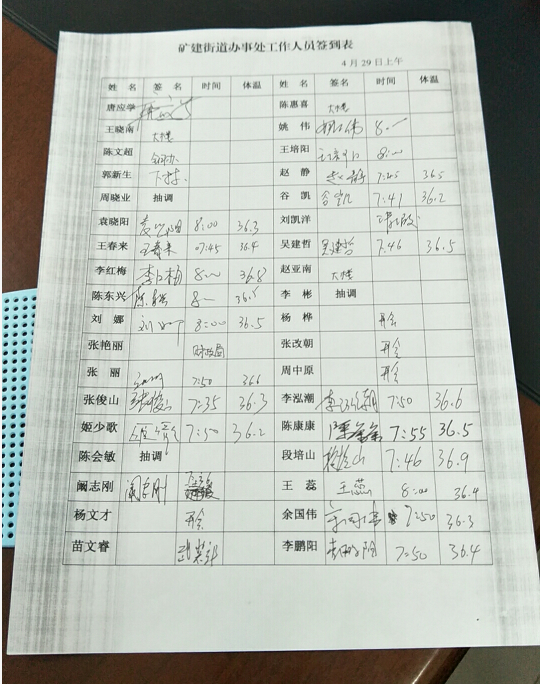 矿建街道办事处工作人员签到表
4月29日上午
姓 名 签 名 时间 体温 姓 名 签名 时间 体温
唐应学 陈惠喜 大楼
王晓南 大楼 姚 伟 姚伟
陈文超 王培阳 8:00
郭新生 下村 赵 静 赵静 7:45 36.5
周晓业 抽调 谷 凯 谷凯 7:41 36.2
袁晓阳 袁晓阳 8:00 36.3 刘凯洋
王春来 王春来 07:45 36.4 吴建哲 吴建哲 7:46 36.5
李红梅 李红梅 36.8 赵亚南 大楼
陈东兴 36.5 李 彬 抽调
刘 娜 刘娜 8:00 36.5 杨 桦 开会
张艳丽 财政局 张改朝 开会
张 丽 7:50 366 周中原 开会
张俊山 张俊山 7:35 36.3 李泓潮 7:50 36.6
姬少歌 7:50 36.2 陈康康 7:55 36.5
陈会敏 抽调 段培山 7:46 36.9
阚志刚 阚志刚 王 蕊 王蕊 8:00 36.4
杨文才 开会 余国伟 7:50 36.3
苗文睿 李鹏阳 7:50 36.4